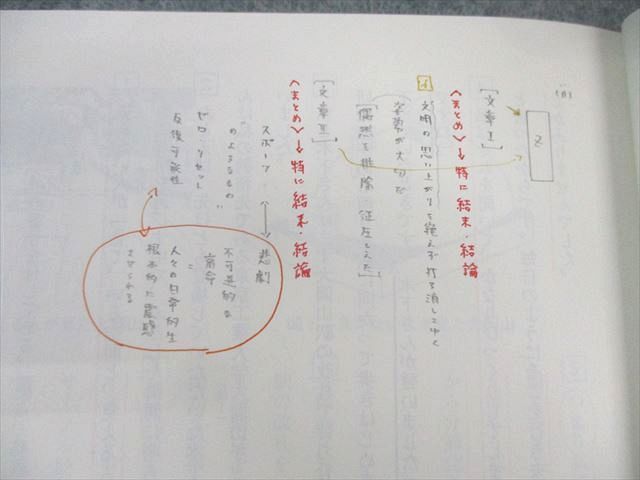 (ii)
Z
[文章I]
〈まとめ〉→特に結末・結論
文明の思い上がりを絶えず打ち消してゆく
姿勢が大切だ
[偶然を排除、征圧しえた]
[文章II]
〈まとめ〉→特に結末・結論
スポーツ ⟷ 悲劇
"のようなもの"
ゼロ・リセット
反復可能性
不可逆的な
宿命
=
人々の日常的生
根本的に震撼
させられる